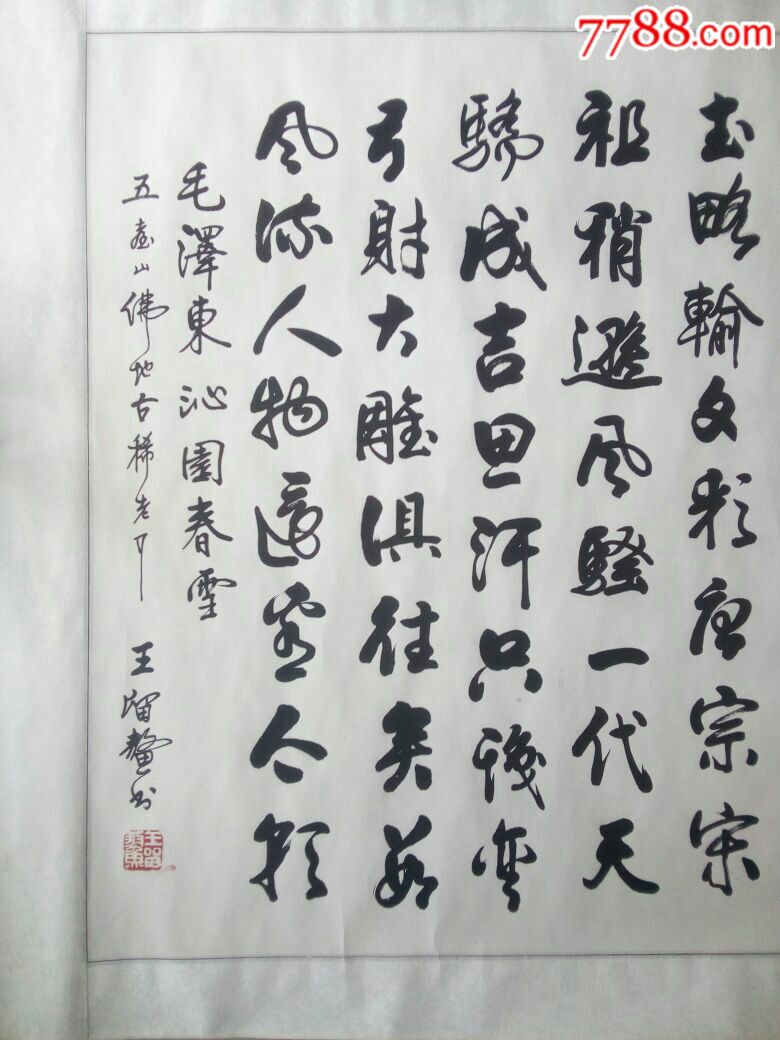 7788.com
武略輸文彩唐宗宋
祖稍遜风騷一代天
驕成吉思汗只識彎
弓射大雕俱往矣数
风流人物還看今朝
毛澤東沁園春雪
五臺山佛地古稀老
王留鰲书